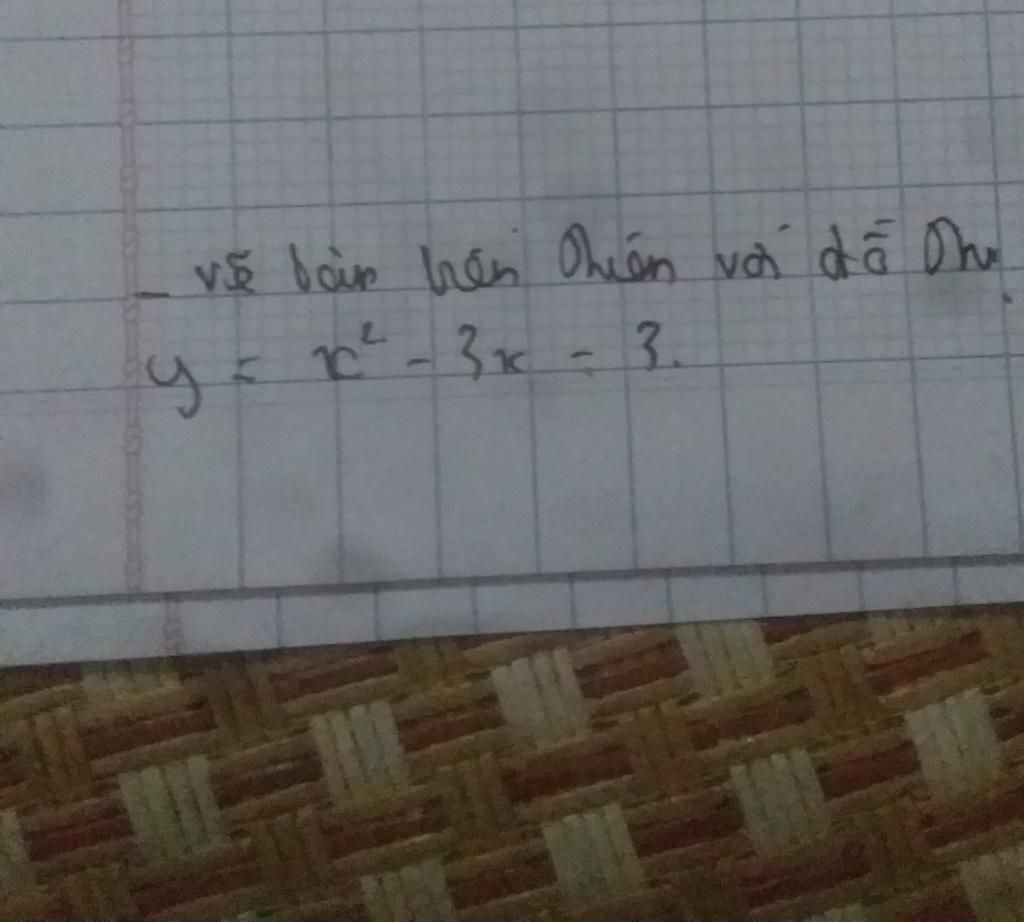 - vẽ bản biến thiên với đồ thị
y = x² - 3x - 3.